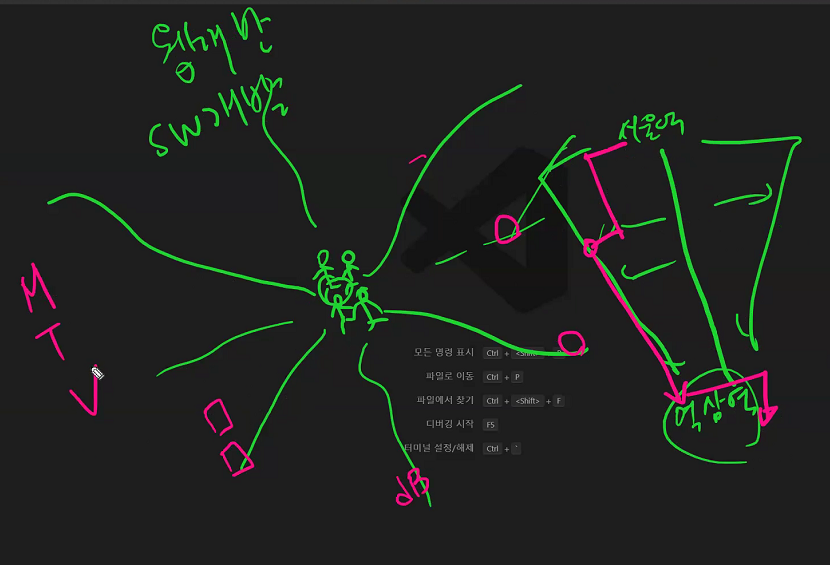 웹개발
SW개발
서울역
M
T
V
모든 명령 표시 Ctrl + <Shift> + P
파일로 이동 Ctrl + P
파일에서 찾기 Ctrl + <Shift> + F
디버깅 시작 F5
터미널 설정/해제 Ctrl + `
역삼역
dB